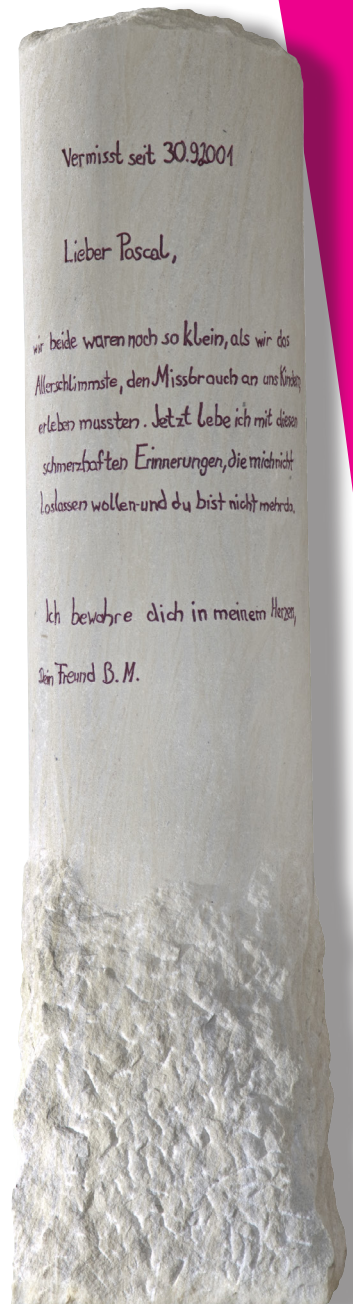 Vermisst seit 30.9.2001
Lieber Pascal,
wir beide waren noch so klein, als wir das
Allerschlimmste, den Missbrauch an uns Kindern,
erleben mussten. Jetzt lebe ich mit diesen
schmerzhaften Erinnerungen, die mich nicht
loslassen wollen - und du bist nicht mehr da.
Ich bewahre dich in meinem Herzen,
Dein Freund B. M.